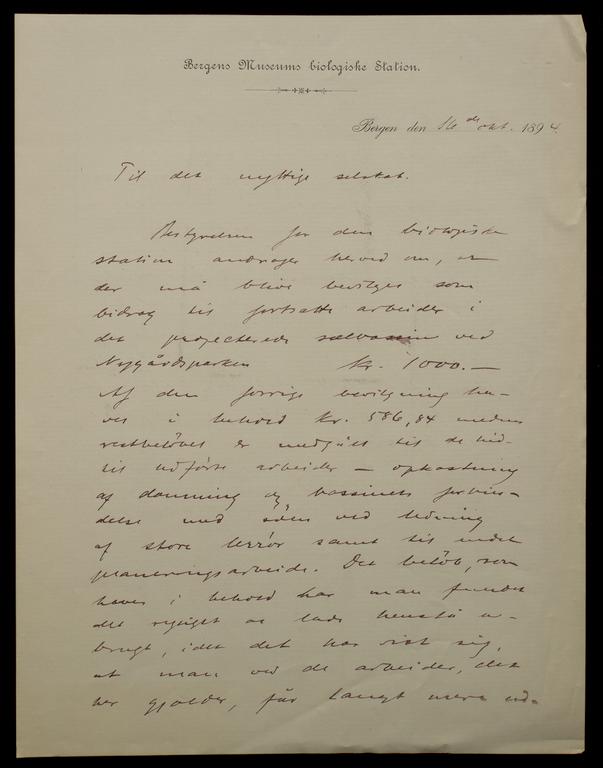 Bergens Museums biologiske Station.
Bergen den 16de okt. 1894.
Til det nyttige selskab.
Bestyrelsen for den biologiske
station andrager herved om, at
der må blive bevilget som
bidrag til fortsatte arbeider i
det projecterede sælbassin ved
Nygårdsparken kr. 1000.—
Af den forrige bevilgning ha-
ves i behold kr. 586,84 medens
restbeløbet er medgået til de hid-
til udførte arbeider — opkastning
af damning og bassinets forbin-
delse med söen ved ledning
af store lerrör samt til endel
planeringsarbeide. Det beløb, som
haves i behold har man fundet
det rigtigst at lade henstå u-
brugt, idet det har vist sig,
at man ved de arbeider, det
her gjælder, får langt mere ud-